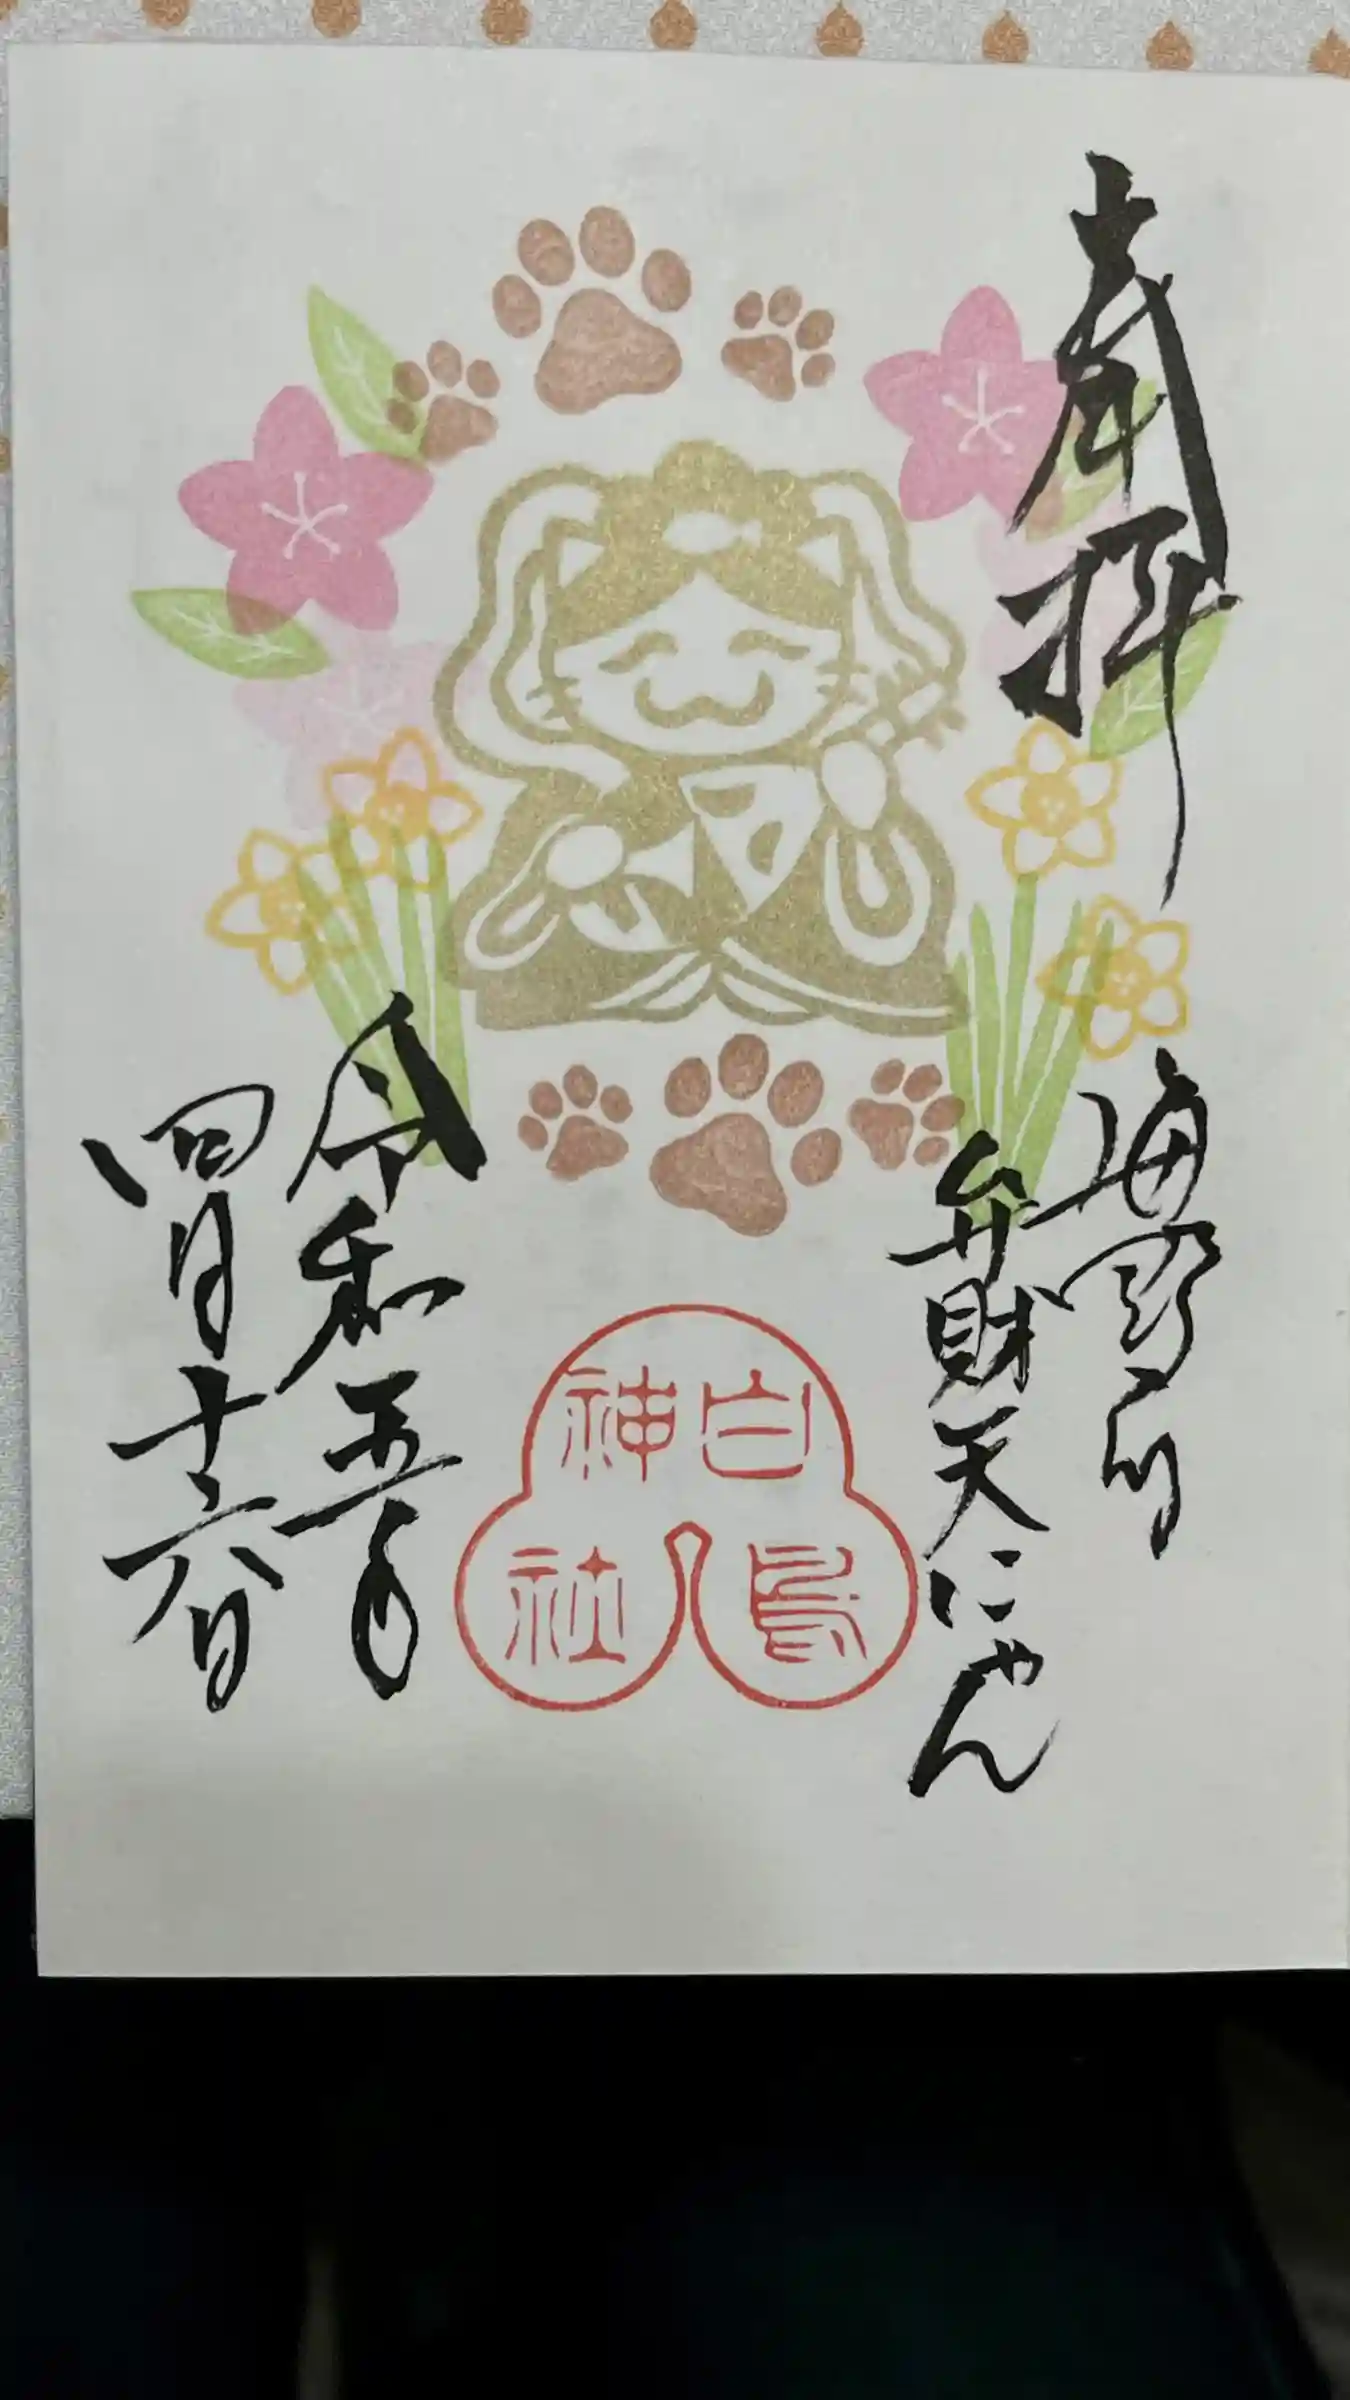 奉拝
海野
弁財天にゃん
白鳥
神社
令和五年
四月十六日